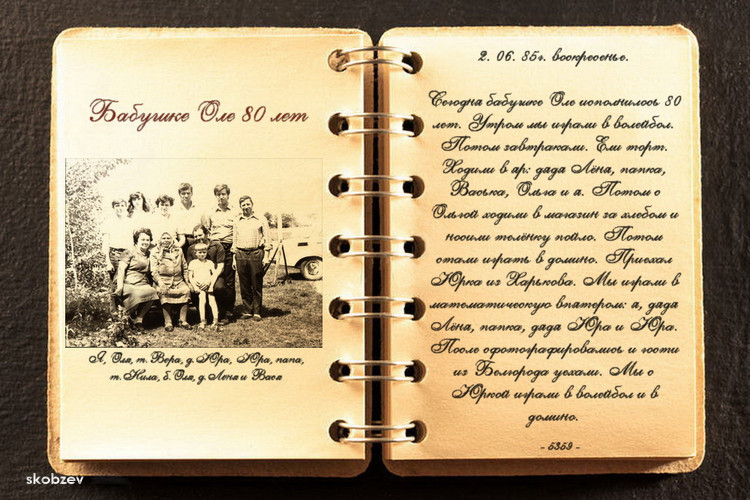 Бабушке Оле 80 лет
Я, Оля, т. Вера, д. Юра, Юра, папа,
т. Нила, б. Оля, д. Лёня и Вася
2. 06. 85г. воскресенье.
Сегодня бабушке Оле исполнилось 80
лет. Утром мы играли в волейбол.
Потом завтракали. Ели торт.
Ходили в яр: дядя Лёня, папка,
Васька, Ольга и я. Потом с
Ольгой ходили в магазин за хлебом и
носили телёнку пойло. Потом
стали играть в домино. Приехал
Юрка из Харькова. Мы играли в
математическую впятером: я, дядя
Лёня, папка, дядя Юра и Юра.
После сфотографировались и гости
из Белгорода уехали. Мы с
Юркой играли в волейбол и в
домино.
- 5359 -
skobzev